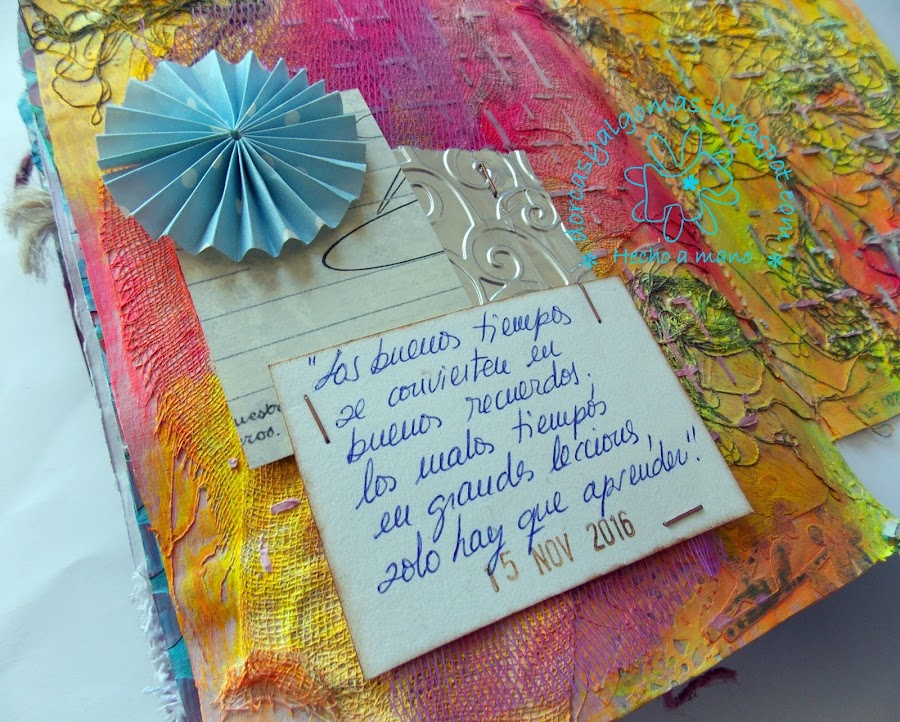 * dorcasyalgomas.blogspot.com *
Hecho a mano
"Los buenos tiempos
se convierten en
buenos recuerdos;
los malos tiempos
en grandes lecciones,
solo hay que aprender."
15 NOV 2016